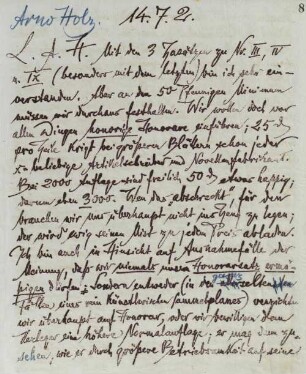 Arno Holz. 14.7.21. 8
L. A. H. Mit den 3 Zusätzen zu Nr. III, IV
u. IX (besonders mit dem letzten) bin ich sehr ein-
verstanden. Aber an den 50 Pfennigen Minimum
müssen wir durchaus festhalten. Wir wollen doch vor
allen Dingen honorige Honorare einführen; 25 d
pro Zeile kriegt bei größeren Blättern schon jeder
x beliebige Artikelschreiber und Novellenfabrikant.
Bei 2000 Auflage sind freilich 50 d etwas happig;
darum aber 3000. Wen das „abschreckt", für den
brauchen wir uns überhaupt nicht ins Zeug zu legen;
der wird ewig seinen Mist zu jedem Preis abladen.
Ich bin auch in Hinsicht auf Ausnahmefälle der
Meinung, daß wir niemals unsern Honorarsatz ermä-
ßigen dürfen; sondern entweder (in den
Fällen eines rein künstlerischen Sammelplanes) verzichten
wir überhaupt auf Honorar, oder wir bewilligen dem
Verleger eine höhere Normalauflage; er mag dann zu-
sehen, wie er durch größere Betriebsamkeit auf seine